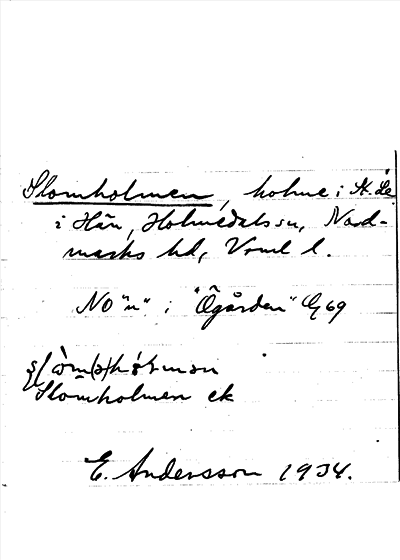 Slomholmen, holme i St. Le
i Hän, Holmedals sn, Nord-
marks hd, Vrml l.
NO "n" i "Ögården" Eg 69
Slomholmen ek
E. Andersson 1934.